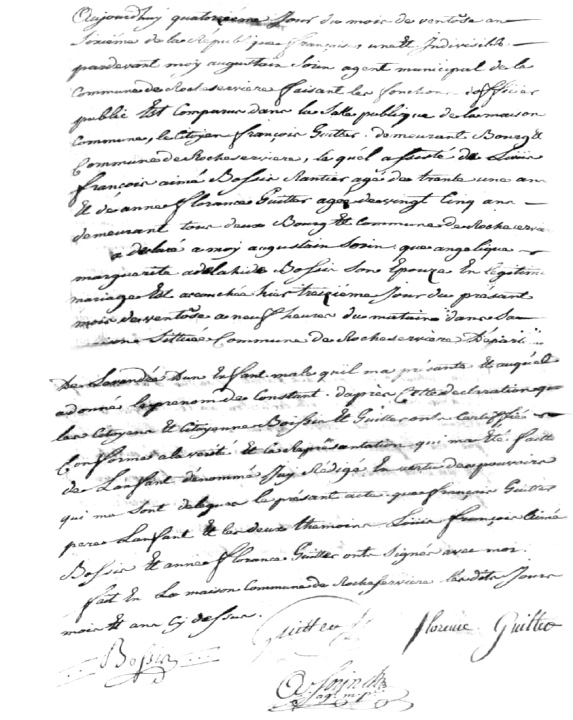 Aujourdhuy quatorzieme Jour du mois de ventôse an
Sixiéme de la Républiquefrançais, une Et Indivisible
pardevant moy augustain Sorin agent municipal de la
Commune de Rocheserviere faisant les fonctions dofficier
public Est Comparus dans la Salle publique de la maison
Commune, le Citoyen françois Guitter demeurant Bourg et
Commune de Rocheserviere, le quel assisté de Louis
françois aimé Bossis Rantier agé de trante une an
Et de anne florance Guitter agée de vingt Cinq ans
demeurant tous deux Bourg Et Commune de Rocheserv
a déclaré a moy augustain Sorin, que angelique
marguerite adelahide Bossis Son Epouze En légitim
mariage Est acouchée hier treizième Jour du présant
mois de ventôse a neuf heures du mataine dans Sa
Sittuée Commune de Rocheserviere Départ
De Lavandée Dun Enfant male quil ma présanté Et auquel
a donné le prenom de Constant. daprés Cette déclaration que
les Citoyens Et Citoyenne Boissis Et Guitter onts Certiffié
Conforme a la verité Et la Représantation qui ma Eté faitte
de Lanfant dénommé Jay Rédigé En vertu des pouvoirs
qui me Sont delegues le présant acte que françois Guitter
pere de Lanfant Et les deux themoins Louis françois aimé
Bossis Et anne florance Guitter onts Signés avec moi.
fait En La maison Commune de Rocheserviere les dits Jours
mois Et ans Cy dessus.
Guitter florence Guitter
Bossis
A Sorin
agt. mpal